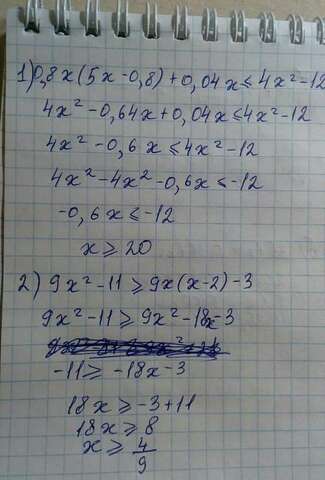 1) 0,8x(5x-0,8)+0,04x≤4x²-12
4x²-0,64x+0,04x≤4x²-12
4x²-0,6x≤4x²-12
4x²-4x²-0,6x≤-12
-0,6x≤-12
x≥20
2) 9x²-11≥9x(x-2)-3
9x²-11≥9x²-18x-3
-11≥-18x-3
18x≥-3+11
18x≥8
x≥4/9